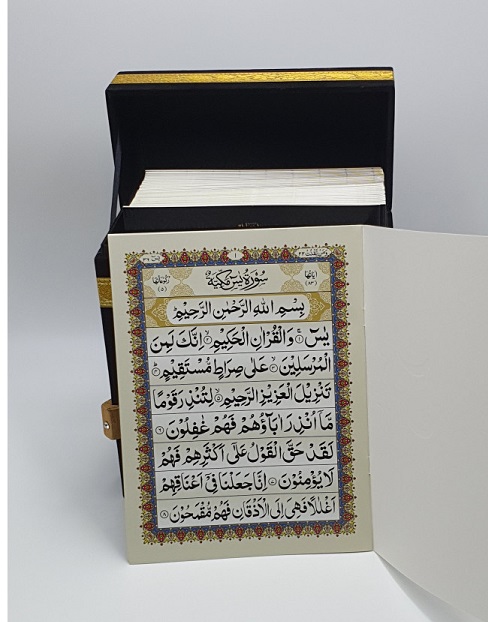 سُوْرَةُ يٰسٓ مَكِّيَّةٌ
اٰيَاتُهَا (۸۳)
رُكُوْعَاتُهَا (۵)
بِسْمِ اللهِ الرَّحْمٰنِ الرَّحِيْمِ
يٰسٓ ۝۱ وَالْقُرْاٰنِ الْحَكِيْمِ ۝۲ اِنَّكَ لَمِنَ
الْمُرْسَلِيْنَ ۝۳ عَلٰى صِرَاطٍ مُّسْتَقِيْمٍ ۝۴
تَنْزِيْلَ الْعَزِيْزِ الرَّحِيْمِ ۝۵ لِتُنْذِرَ قَوْمًا
مَّاۤ اُنْذِرَ اٰبَآؤُهُمْ فَهُمْ غٰفِلُوْنَ ۝۶
لَقَدْ حَقَّ الْقَوْلُ عَلٰۤى اَكْثَرِهِمْ فَهُمْ
لَا يُؤْمِنُوْنَ ۝۷ اِنَّا جَعَلْنَا فِيْۤ اَعْنَاقِهِمْ
اَغْلٰلًا فَهِيَ اِلَى الْاَذْقَانِ فَهُمْ مُّقْمَحُوْنَ ۝۸